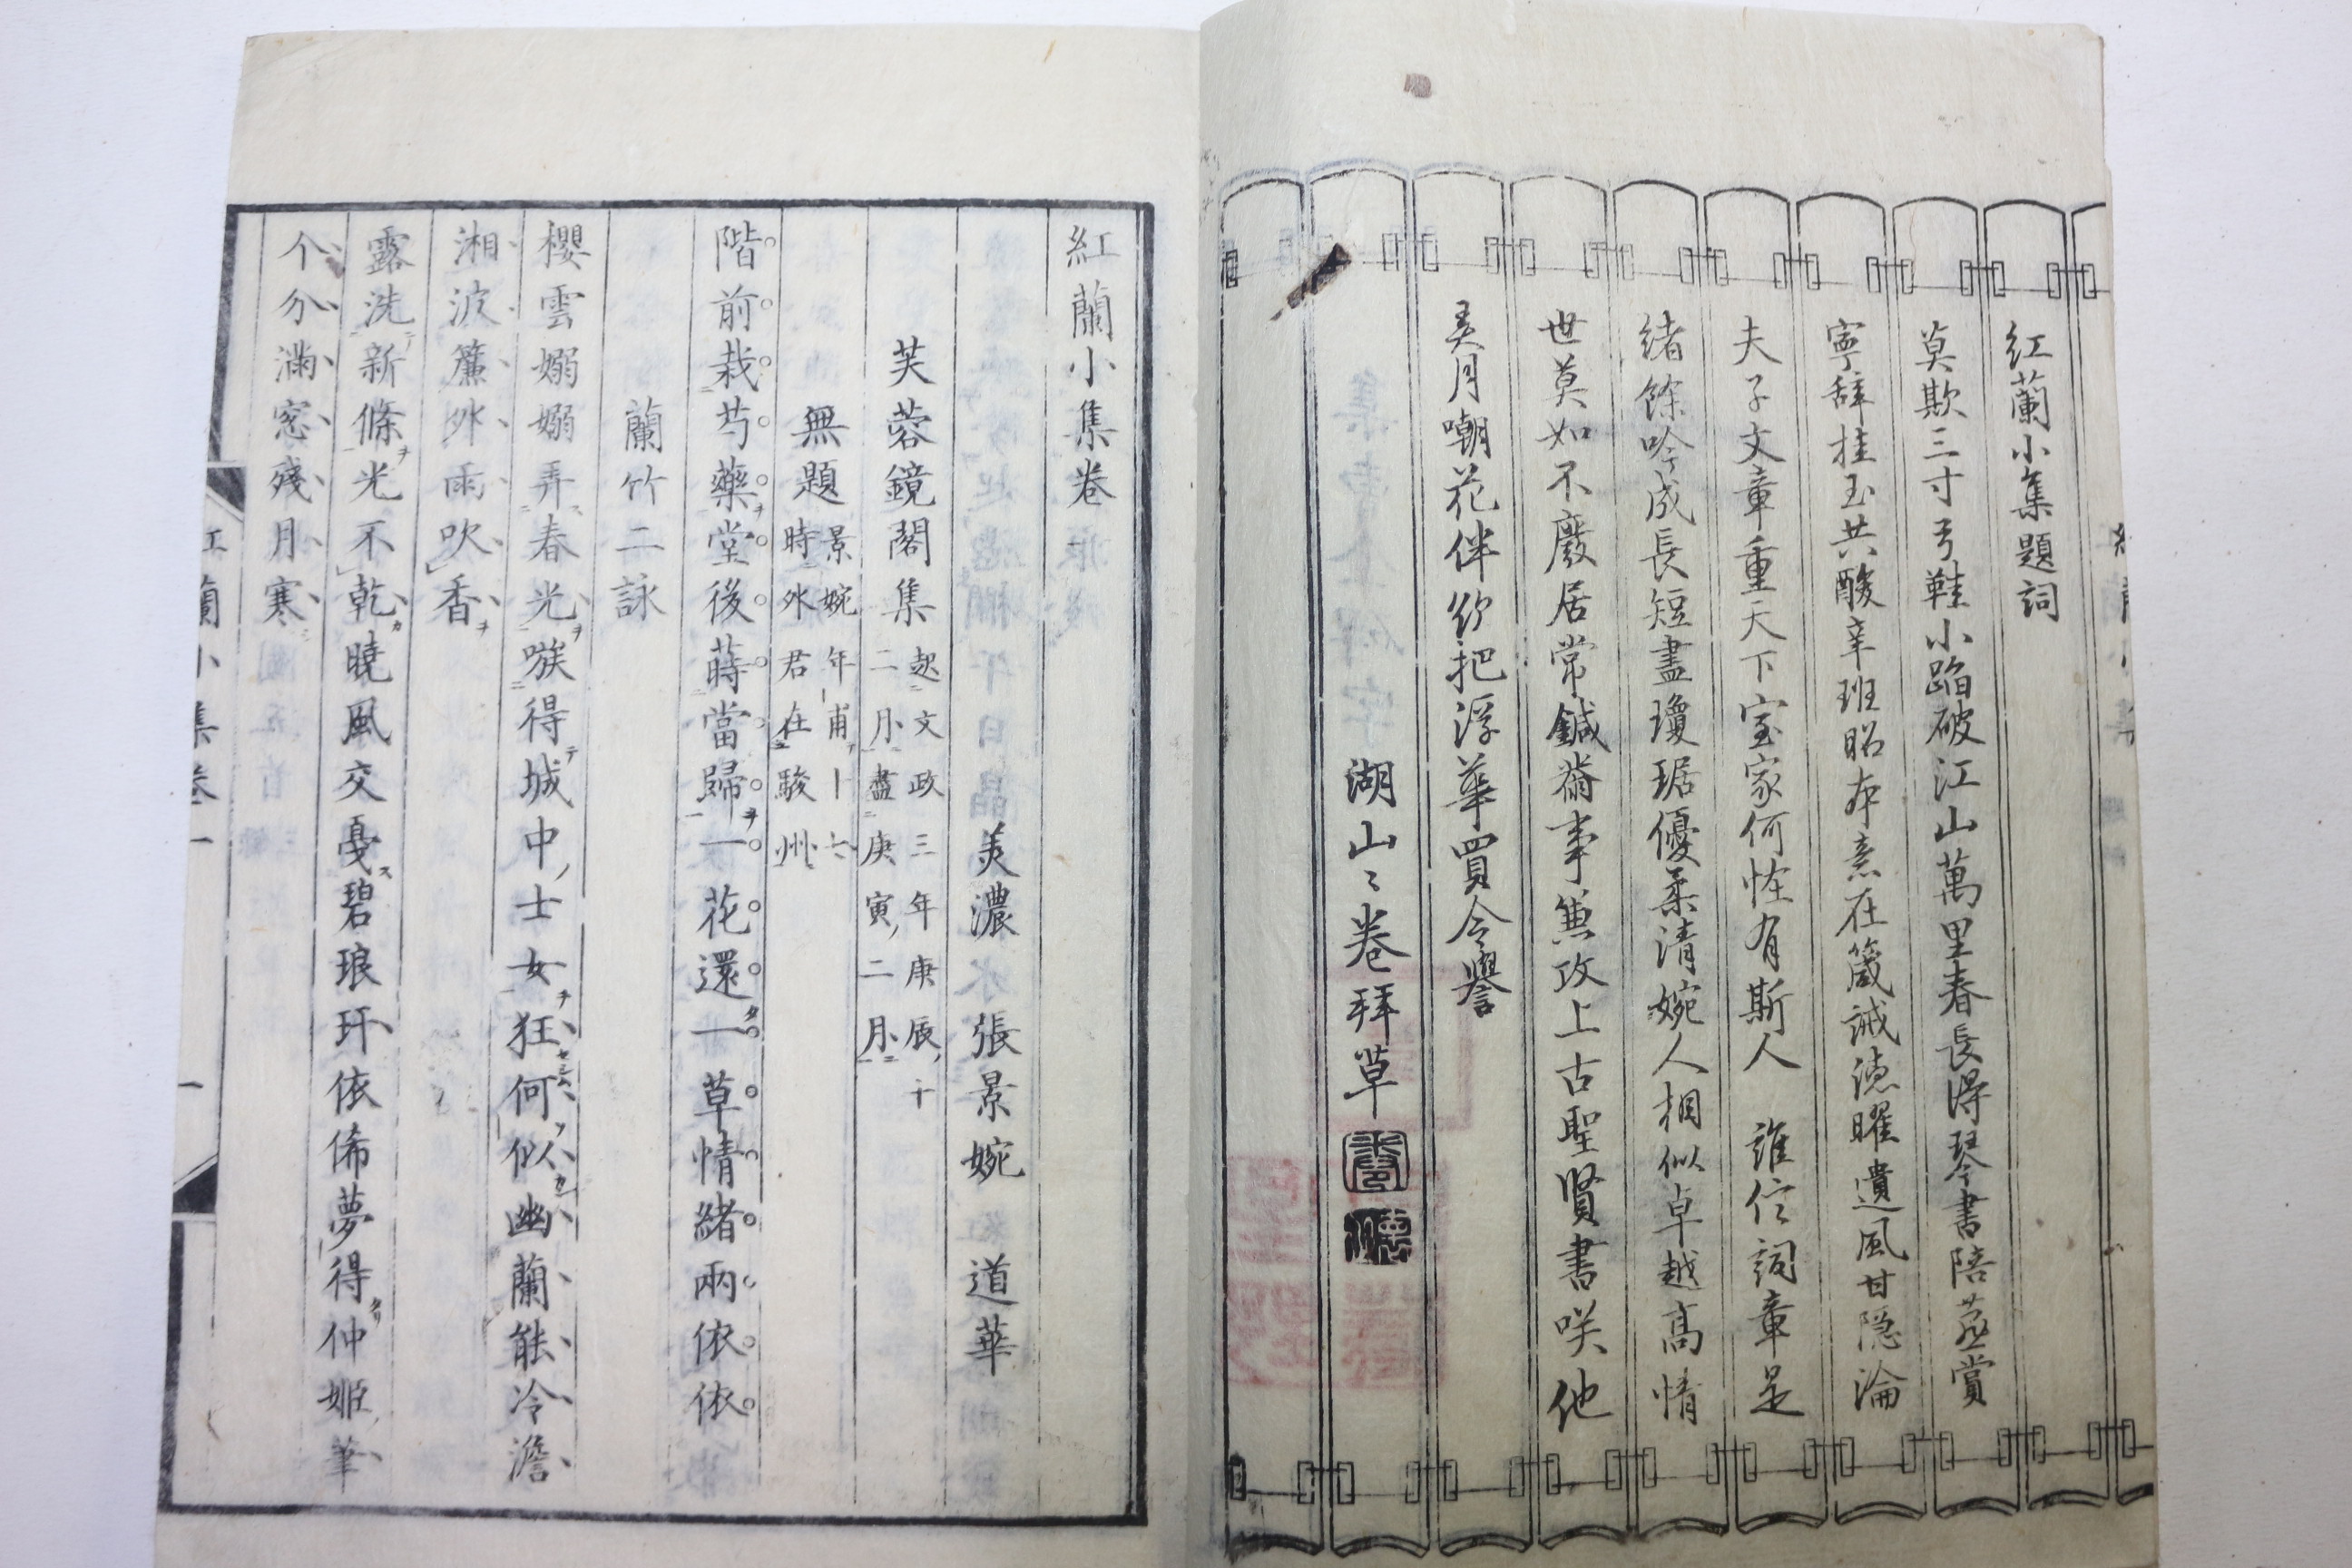 紅蘭小集題詞
莫欺三寸弓鞋小踏破江山萬里春長得琴書陪燕賞
寧辭桂玉共酸辛班昭本素在箴誡德曜遺風甘隱淪
夫子文章重天下室家何怪有斯人　誰信詞章是
緒餘吟成長短盡瓊琚優柔清婉人相似卓越高情
世莫如不廢居常鍼黹事兼攻上古聖賢書咲他
美月嘲花伴欲把浮華買令譽
湖山々巻拜草
紅蘭小集卷一
美濃 張景婉 道華
芙蓉鏡閣集 起文政三年庚辰十
二月盡庚寅二月
無題 景婉年甫十七
時外君在駿州
階前栽芍藥ヲ堂後蒔當歸ヲ一花還タ一草情緒兩依依
蘭竹二詠
櫻雲嫋嫋弄春光ヲ嗾得テ城中ノ士女ヲ狂何似幽蘭能冷澹
湘波簾外雨吹香ヲ
露洗新條ヲ光不乾カ曉風交戞ス碧琅玕依俙夢得タリ仲姬筆
个分滿窓殘月寒
紅蘭小集卷一
一